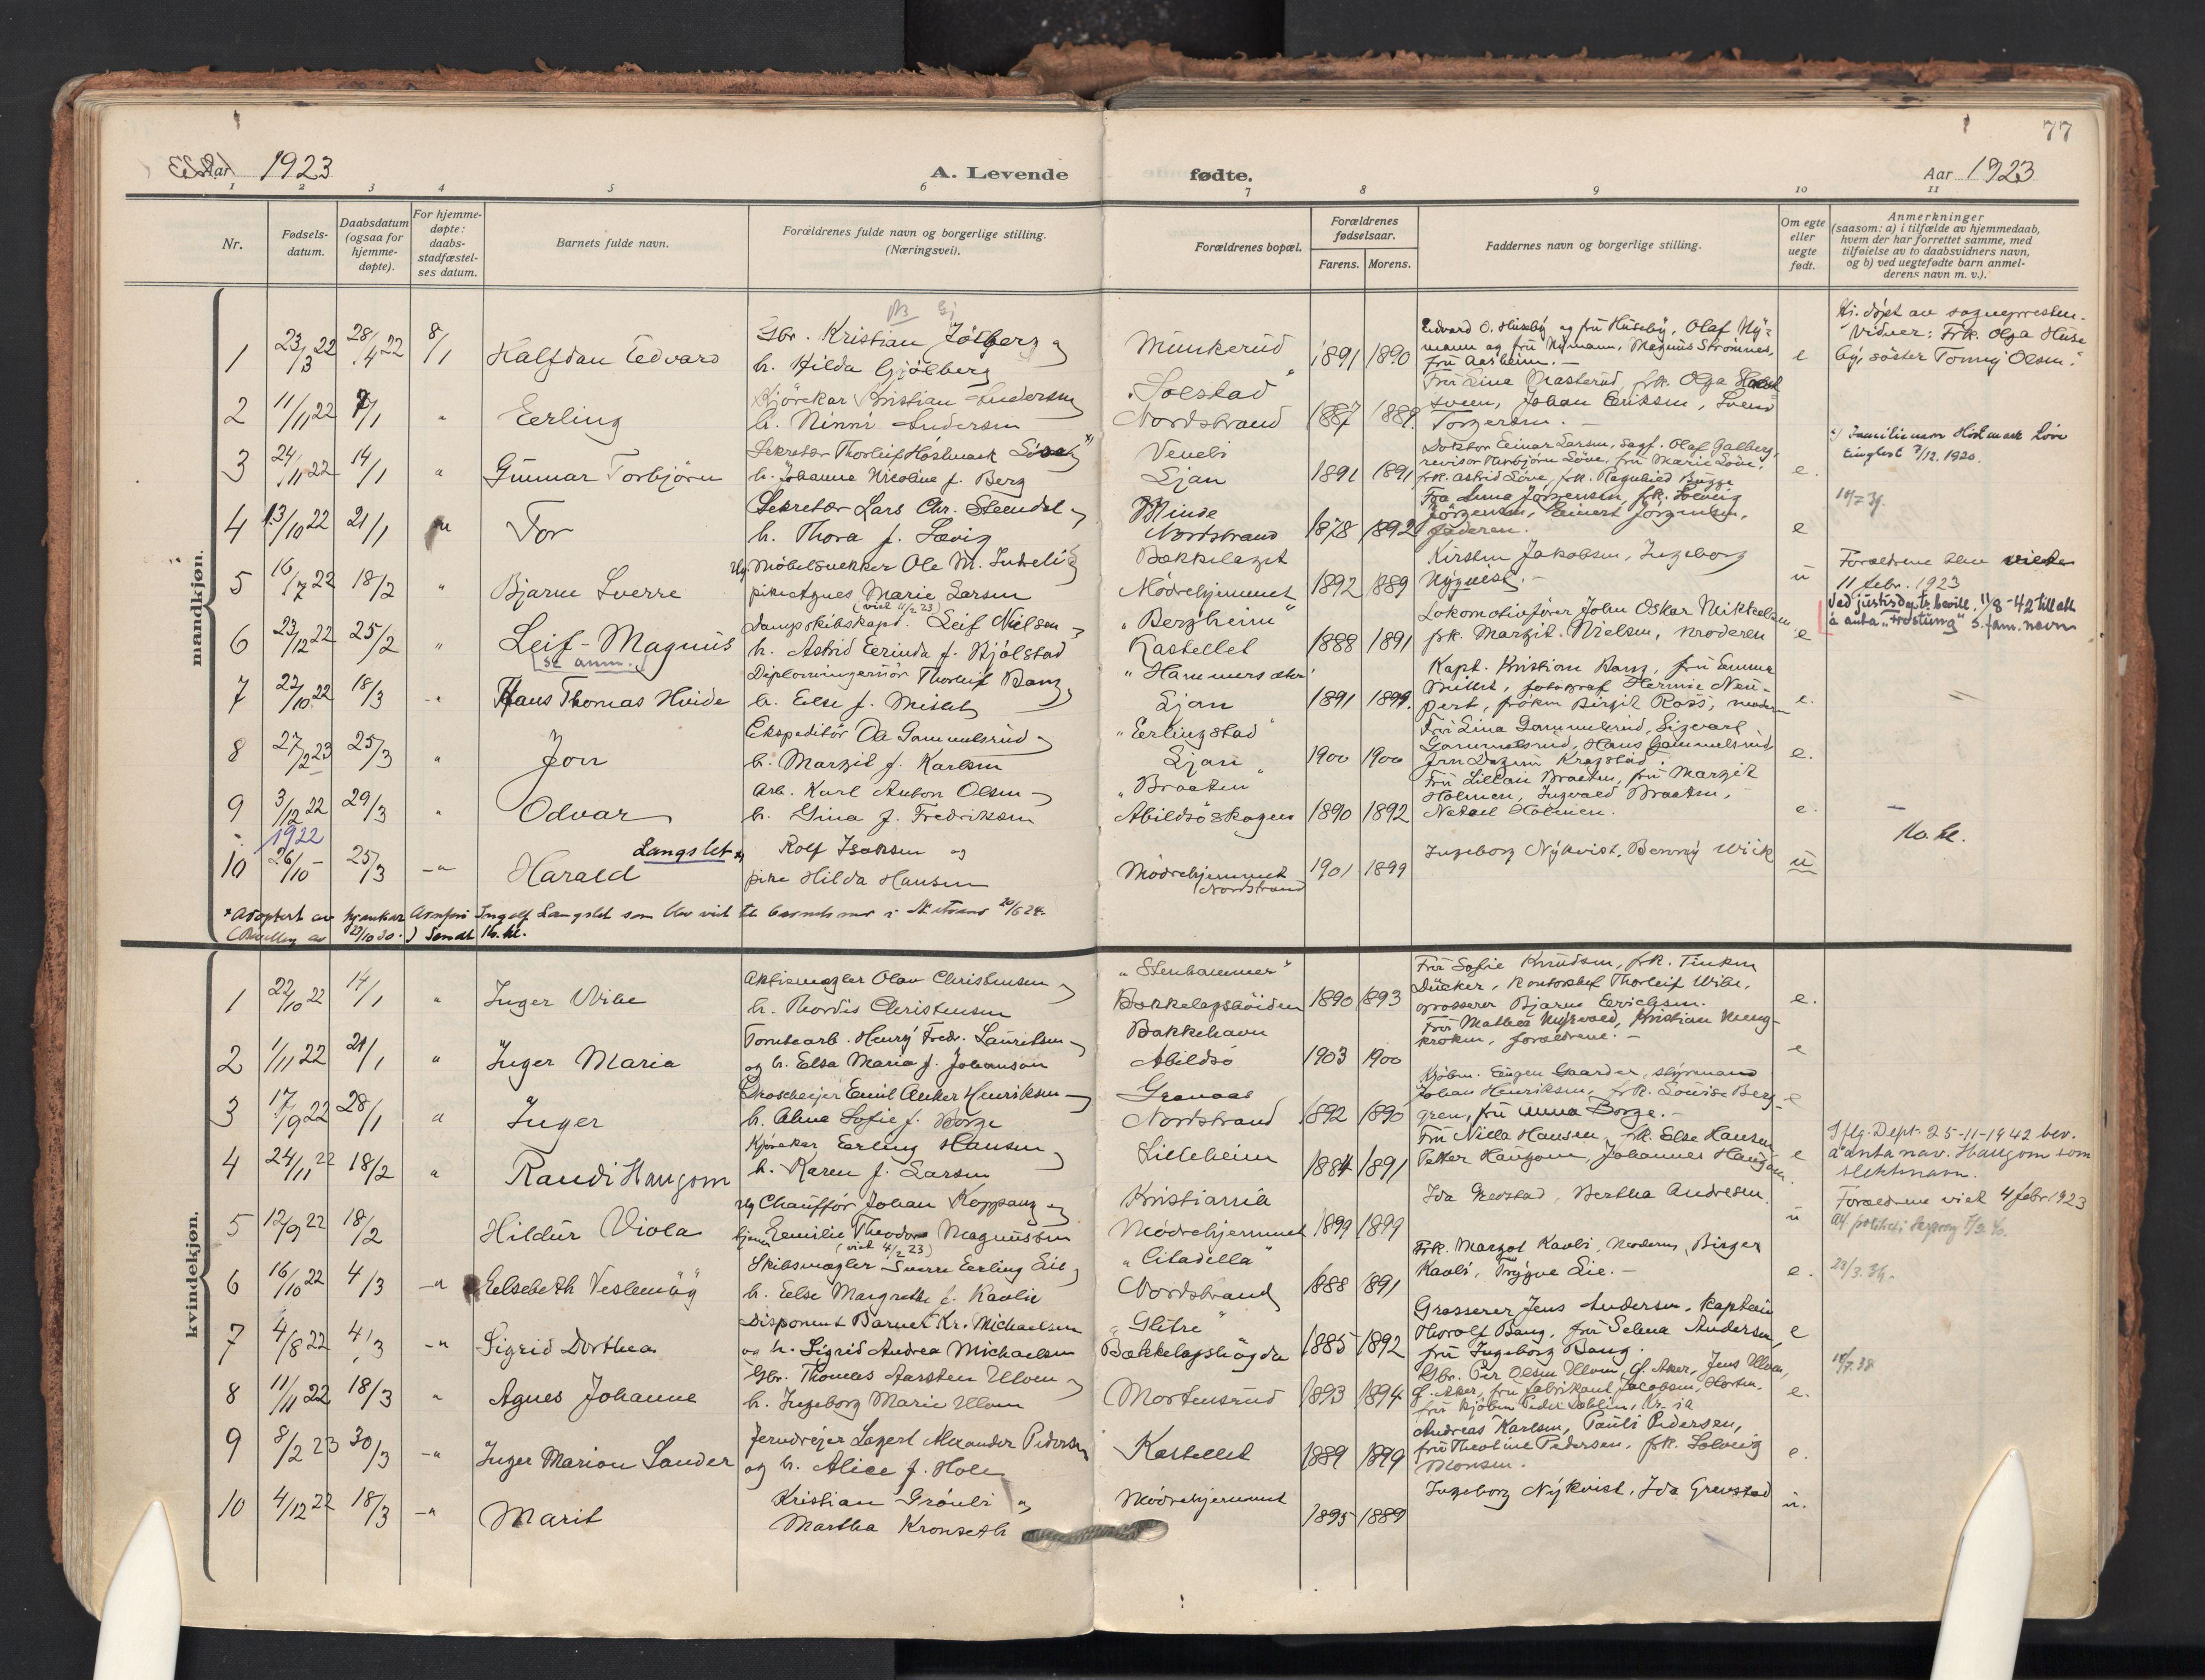 77
Aar 1923
A. Levende
fødte.
Aar 1923
1 2 3 4 5 6 7 8 9 10 11
Nr.
Fødsels-
datum.
Daabsdatum
(ogsaa for
hjemme-
døpte).
For hjemme-
døpte:
daabs-
stadfæstel-
ses datum.
Barnets fulde navn.
Forældrenes fulde navn og borgerlige stilling.
(Næringsvei).
Forældrenes bopæl.
Forældrenes
fødselsaar.
Farens. Morens.
Faddernes navn og borgerlige stilling.
Om egte
eller
uegte
født.
Anmerkninger
(saasom: a) i tilfælde av hjemmedaab,
hvem der har forrettet samme, med
tilføielse av to daabsvidners navn,
og b) ved uegtefødte barn anmel-
derens navn m. v.).
mandkjøn.
1 23/3 22 28/4 22 8/1 Halfdan Edvard
Gbr. Kristian Jølberg og
h. Hilda Gjølberg
Munkerud 1891 1890
Edvard O. Huseby og fru Huseby, Olaf Ny-
mann og fru Nymann, Magnus Strømnes,
fru Aasheim. —
e
Hj. døpt av sognepresten.
Vidner: Frk. Olga Huse
by, søster Tonny Olsen.
2 11/11 22 7/1 " Erling
Kjørekar Kristian Andersen
h. Ninni Andersen
"Solstad"
Nordstrand 1887 1889
Fru Lina Masterud, frk. Olga
sveen, Johan Eriksen, Svend
Torgersen. —
3 24/11 22 14/1 " Gunnar Torbjørn
Sekretær Thorleif Høstmark
h. Johanne Nicoline f. Berg
Venebi
Ljan 1891 1891
Doktor Einar Larsen, sagf. Olaf Galberg,
revisor Thorbjørn Löve, fru Marie Löve,
frk. Astrid Löve, frk. Ragnhild Bugge
e.
x) Familienavn Høstmark Löve
tinglest 7/12. 1920.
4 13/10 22 21/1 " Tor
Sekretær Lars Chr. Steendal
h. Thora f. Lævig
Minde
Nordstrand 1878 1892
Fru Anna Jørgensen, frk. Solveig
Jörgensen, Einert Jörgensen,
faderen.
e
5 16/7 22 18/2 " Bjarne Sverre
Ug. Møbelsnekker Ole M.
pike Agnes Marie Larsen
(viet 11/2 23)
Bækkelaget
Mødrehjemmet 1892 1889
Kirsten Jakobsen, Ingeborg
Nyquist. —
u
Forældrene blev viede
11 febr. 1923
6 23/12 22 25/2 " Leif-Magnus
se anm.
Dampskibskapt. Leif Nielsen
h. Astrid Erinda f. Kjölstad
"Bergheim"
Kastellet 1888 1891
Lokomotivfører John Oskar Mikkelsen
frk. Margit Nielsen, moderen
e
Ved justisdepts. bevill. 11/8-42 till. att
å anta s. fam. navn
7 22/10 22 18/3 -" Hans Thomas Hvide
Diplomingeniør Thorleif Bang
h. Else f. Misch
Ljan 1891 1899.
Kapt. Kristian Bang, fru Emma
fotograf Hermie Neu-
pert, frøken Birgit Ross, moderen
e.
8 27/2 23 25/3 " Jon
Ekspeditør Gammelsrud
h. Margit f. Karlsen
"Erlingstad"
Ljan 1900 1900
Fru Lina Gammelsrud, Sigvart
Gammelsrud, Hans Gammelsrud
fru Dagny Kragstad.
e.
9 3/12 22 29/3 " Odvar
Arb. Karl Anton Olsen
h. Gina f. Fredriksen
"Braaten"
Abildsöskogen 1890 1892
Fru Lillian Braaten, fru Margit
Holmen, Ingvald Braaten,
Holmen.
e.
1922
10 26/10 - 25/3 -" Harald Langslet x)
Rolf Isaksen og
pike Hilda Hansen
Mødrehjemmet
Nordstrand 1901 1899
Ingeborg Nykvist, Benny Wiik
u
* Adoptert av Ingolf Langslet som blev viet til barnets mor
kvindekjøn.
1 22/10 22 14/1 " Inger Wibe
Aktiemægler Olav Christensen
h. Thordis Christensen
"Stenhammer"
Bækkelagshöiden 1890 1893
Fru Sofie Knudsen, frk. Tinken
Dücker, Kontorchef Thorleif Wibe,
grosserer Bjarne Erichsen.
e.
2 1/11 22 21/1 " Inger Maria
Tomtearb. Henry Fredr. Lauritsen
og h. Elsa Maria f. Johanson
Bakkehavn
Abildsö 1903 1900
Fru Mathea Kristian
kroken, forældrene. —
e
3 17/9 22 28/1 " Inger
Droscheeier Emil Anker Henriksen
h. Alma Sofie f. Borge
Granaas
Nordstrand 1892 1890
Kjøbm. Eugen Gaarder, styrmand
Johan Henriksen, frk. Louise Berg-
gren, fru Anna Borge. —
e
4 24/11 22 18/2 " Randi Haugom
Kjørekar Erling Hansen
h. Karen f. Larsen
Lilleheim 1884 1891
Fru Nilla Hansen, frk. Else Hansen
Petter Haugom, Johannes Haugom.
e
Iflg. Dept. 25-11-1942 bev.
å anta nav. Haugom som
slektsnavn.
5 12/9 22 18/2 Hildur Viola
Ug Chauffør Johan Koppang og
Emilie Theodora Magnussen
(viet 4/2 23)
Kristiania
Mødrehjemmet 1899 1899
Ida Grevstad, Bertha Andresen.
u
Forældrene viet 4 febr 1923
6 16/10 22 4/3 -" Elsebeth Veslemöy
Skibsmægler Sverre Erling Lie
h. Else Margrethe f. Kavli
"Citadella"
Nordstrand 1888 1891
Frk. Margot Kavli, Moderen, Birger
Kavli, Trygve Lie. —
e.
23/3.34.
7 4/8 22 4/3 -" Sigrid Dorthea
Disponent Barner Kr. Michaelsen
og h. Sigrid Andrea Michaelsen
"Glitre"
Bækkelagshögda 1885 1892
Grosserer Jens Andersen, kaptein
Thoralf Bang, fru Selma Andersen,
fru Ingeborg Bang.
e
8 11/11 22 18/3 " Agnes Johanne
Gbr. Thomas Aarsten Ulven
h. Ingeborg Marie Ulven
Mortensrud 1893 1894
Gbr. Per Olsen Ulven, Ø. Aker, Jens Ulven,
Ø. Aker, fru fabrikant Jacobsen, Horten,
e.
9 8/2 23 30/3 -" Inger Marion Sander
Jerndrejer Lagert Alexander Pedersen
og h. Alice f. Holm
Kastellet 1889 1899
Andreas Karlsen, Pauli Pedersen,
fru Theoline Pedersen, frk. Solveig
Monsen.
e.
10 4/12 22 18/3 -" Marit
Kristian Grönli og
Martha Kronseth
Mødrehjemmet 1895 1889
Ingeborg Nykvist, Ida Grevstad
u.